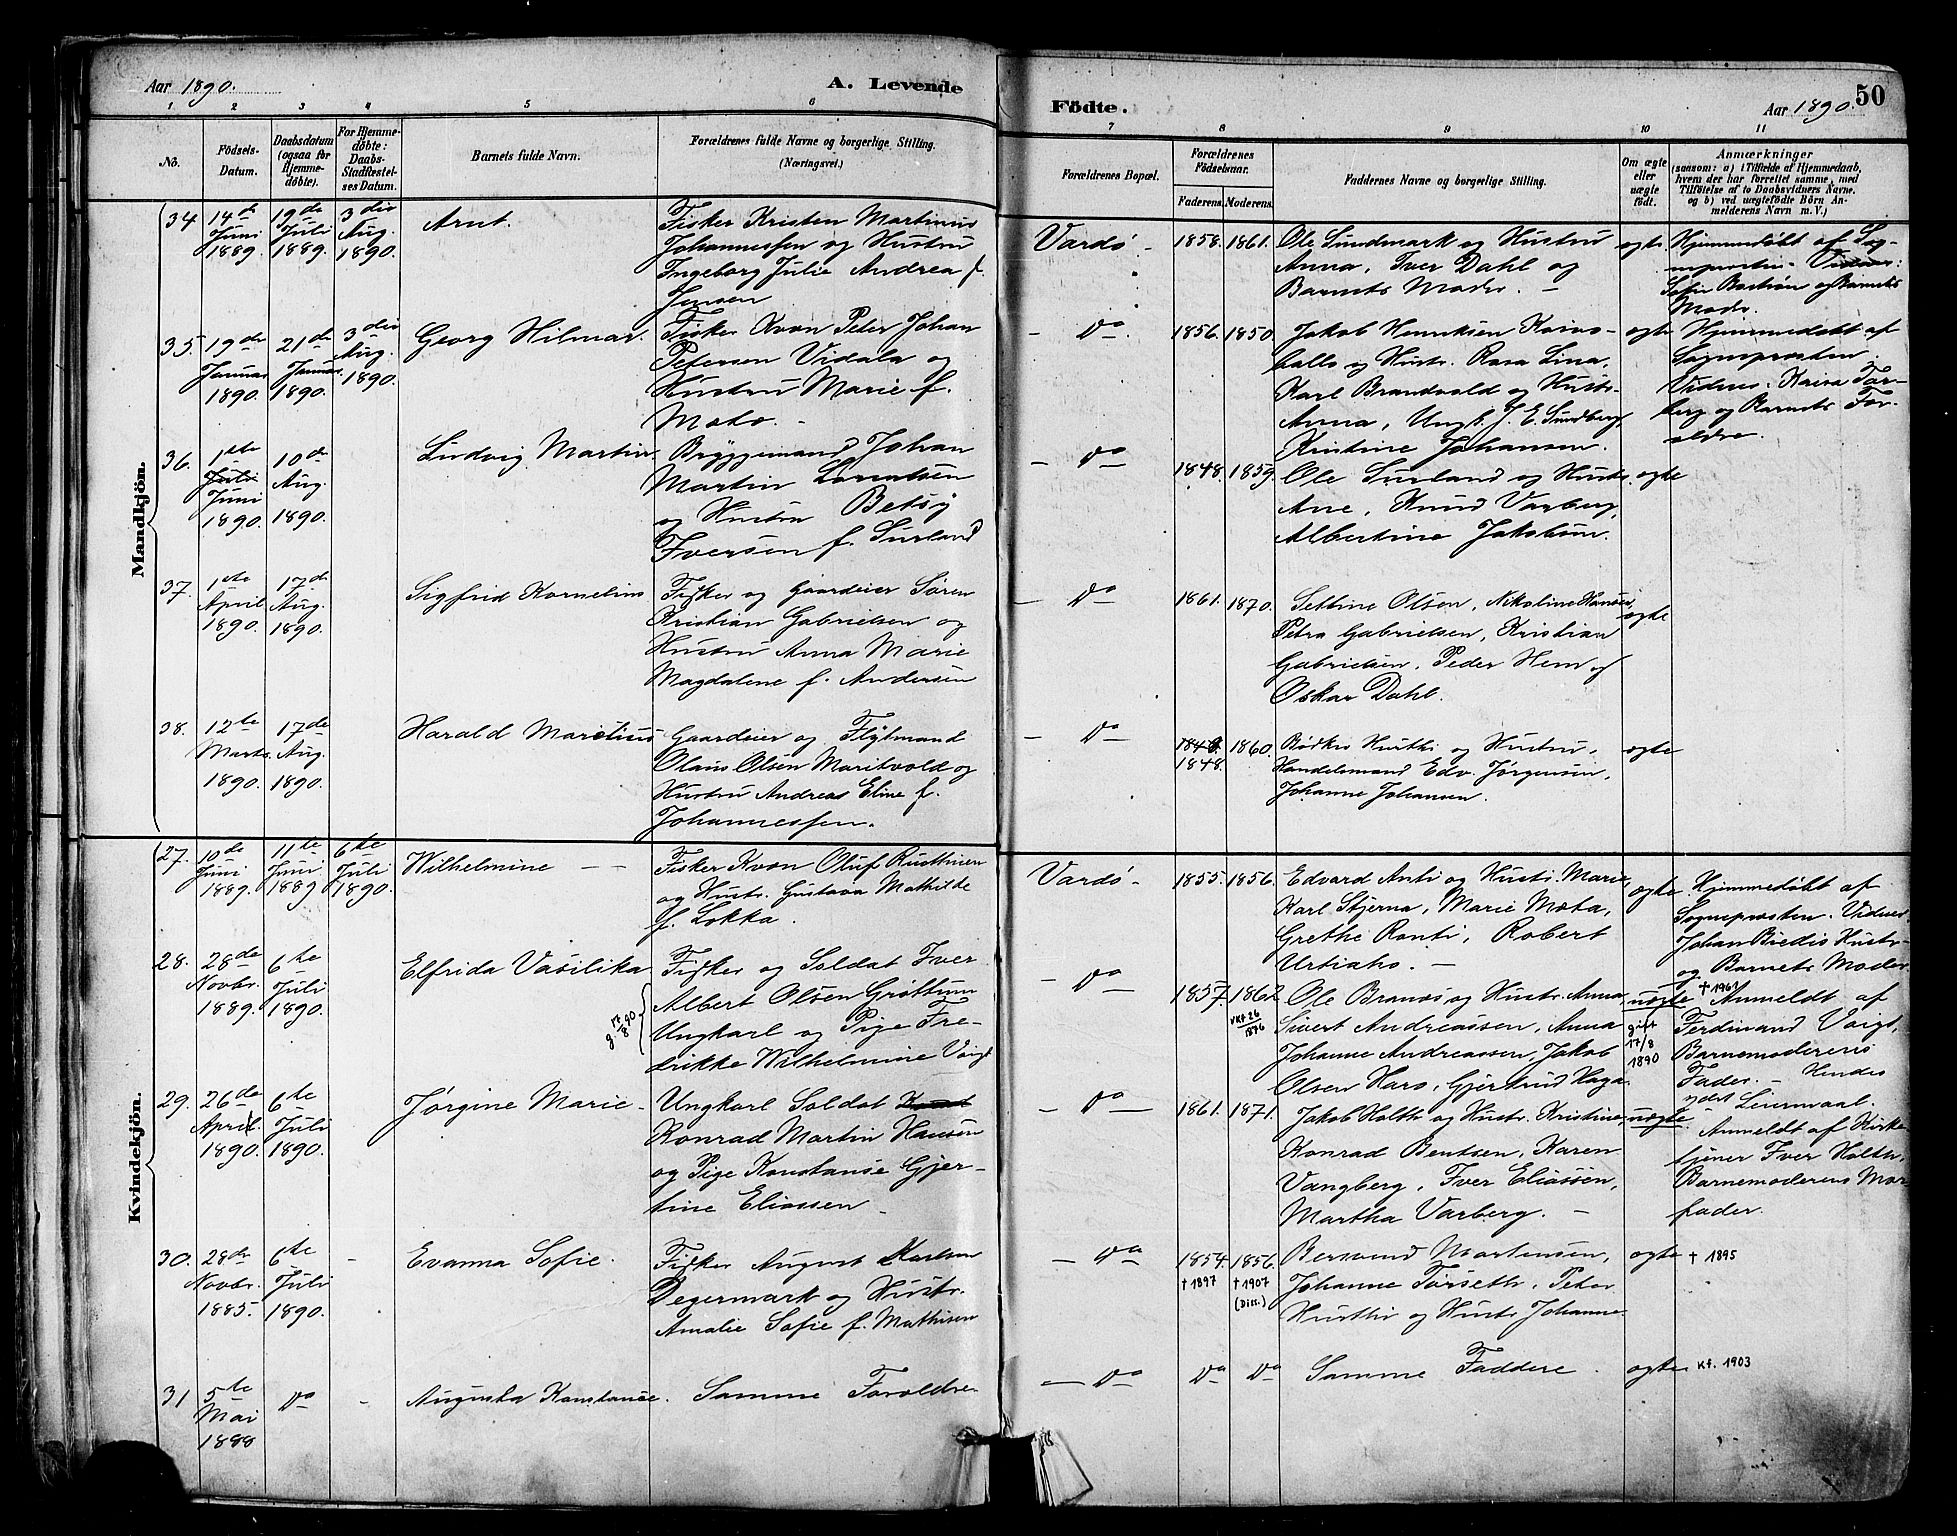 Aar 1890.
A. Levende
Födte.
Aar 1890.
50
1 2 3 4 5 6 7 8 9 10 11
No.
Födsels-
Datum.
Daabsdatum
(ogsaa for
Hjemme-
döbte).
For Hjemme-
döbte:
Daabs-
Stadfestel-
ses Datum.
Barnets fulde Navn.
Forældrenes fulde Navne og borgerlige Stilling.
(Næringsvei.)
Forældrenes Bopæl.
Forældrenes
Födselsaar.
Faderens. Moderens.
Faddernes Navne og borgerlige Stilling.
Om ægte
eller
uægte
födt.
Anmærkninger
(saasom: a) i Tilfælde af Hjemmedaab,
hvem der har forrettet samme, med
Tilföielse af to Daabsvidners Navne.
og b) ved uægtefödte Börn An-
melderens Navn m. V.)
Mandkjön.
34
14de
Juni
1889.
19de
Juli
1889.
3die
Aug.
1890.
Arnt.
Fisker Kristen Martinus
Johannessen og Hustru
Ingeborg Julie Andrea f.
Jensen
Vardö
1858. 1861.
Ole Sundmark og Hustru
Anna, Iver Dahl og
Barnets Moder. —
ægte
Hjemmedöbt af Sog-
nepresten. Vidner:
Sofie Bastian og Barnets
Moder.
35.
19de
Januar
1890.
21de
Januar
1890.
3die
Aug.
1890.
Georg Hilmar.
Fisker Kvæn Peter Johan
Petersen Vidala og
Hustru Marie f.
Moto.
— Do
1856. 1850.
Jakob Henriksen Koivo-
balls og Hustr. Rosa Lina,
Karl Brandvold og Hustr.
Anna, Ungk. J. E. Sundberg,
Kristine Johansen.
ægte
Hjemmedöbt af
Sognepresten.
Vidner: Kaisa Tor-
berg og Barnets For-
ældre.
36.
1ste
Juli
Juni
1890.
10de
Aug.
1890.
Ludvig Martin
Bryggemand Johan
Martin Lorentsen
og Hustru Betsy
Iversen f. Surland
— Do
1848. 1859.
Ole Surland og Hustr.
Ane, Knud Varberg,
Albertine Jakobsen.
ægte
37.
1ste
April
1890.
17de
Aug.
1890.
Sigfrid Kornelius
Fisker og Gaardeier Sören
Kristian Gabrielsen og
Hustru Anna Marie
Magdalene f. Andersen
— Do
1861. 1870.
Settine Olsen, Nikoline Hansen,
Petra Gabrielsen, Kristian
Gabrielsen, Peder Hem og
Oskar Dahl.
ægte
38.
12te
Marts
1890.
17de
Aug.
1890.
Harald Marelius
Gaardeier og Flytmand
Olaus Olsen Maritvold og
Hustru Andrea Eline f.
Johannessen.
— Do
1848. 1860.
Bödker Hurthi og Hustru,
Handelsmand Edv. Jörgensen,
Johanne Johansen.
ægte
Kvindekjön.
27.
10de
Juni
1889.
11te
Juni
1889
6te
Juli
1890.
Wilhelmine — —
Fisker Kvæn Oluf Rusthinen
og Hustr. Gustava Mathilde
f. Lokka.
Vardö
1855. 1856.
Edvard Anti og Hustr. Marie,
Karl Stjerna, Marie Mota,
Grethe Ronti, Robert
Urtiaho. —
ægte
Hjemmedöbt af
Sognepresten. Vidner
Johan Biedis Hustr.
og Barnets Moder.
28.
28de
Novbr.
1889.
6te
Juli
1890.
Elfrida Vasilika
Fisker og Soldat Iver
Albert Olsen Gröttum
Ungkarl og Pige Fre-
drikke Wilhelmine Voigt
g. 17/8 90
— Do
1857. 1862.
Vkt 26/1876
Ole Branæs og Hustr. Anna,
Sivert Andreassen, Anna
Johanne Andreassen, Jakob
Olsen Haro, Gjertrud Haga.
uægte
gift
17/8
1890
† 1961
Anmeldt af
Ferdinand Voigt,
Barnemoderens
Fader. — Hendes
2det Leiermaal.
29.
26de
April
1890.
6te
Juli
1890.
Jörgine Marie
Ungkarl Soldat
Konrad Martin Hansen
og Pige Konstanse Gjer-
tine Eliassen
— Do —
1861. 1871.
Jakob Holth og Hustr. Kristine,
Konrad Bentsen, Karen
Vangberg, Iver Eliassen,
Martha Varberg. —
uægte
Anmeldt af Kirke-
tjener Iver Holth,
Barnemoderens Mor-
fader.
30.
28de
Novbr.
1885.
6te
Juli
1890.
Evanna Sofie.
Fisker August Karlsen
Degermark og Hustr.
Amalie Sofie f. Mathisen
— Do
1854. 1856.
† 1897 † 1907
(Diss.)
Bersvend Mortensen,
Johanne Torseth, Peter
Hurthi og Hustr. Johanne
ægte
† 1895
31
5te
Mai
1888
Do
Augusta Konstanse.
Samme Forældre
— Do
Do Do
Samme Faddere.
ægte
Kf. 1903